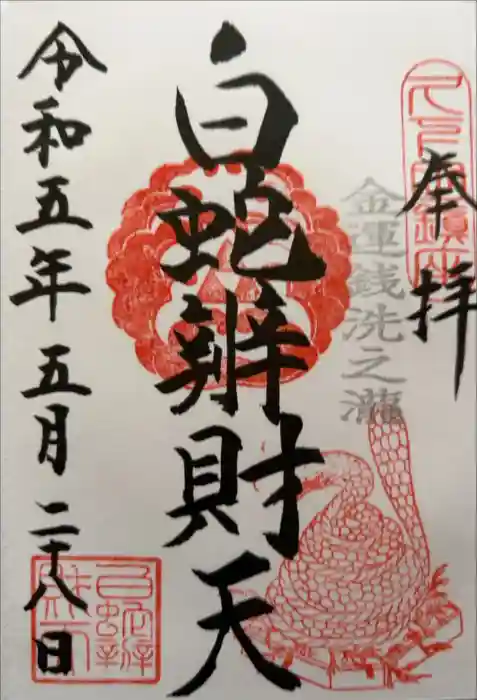 奉拝
金運銭洗之瀧
白蛇辨財天
令和五年五月二十八日